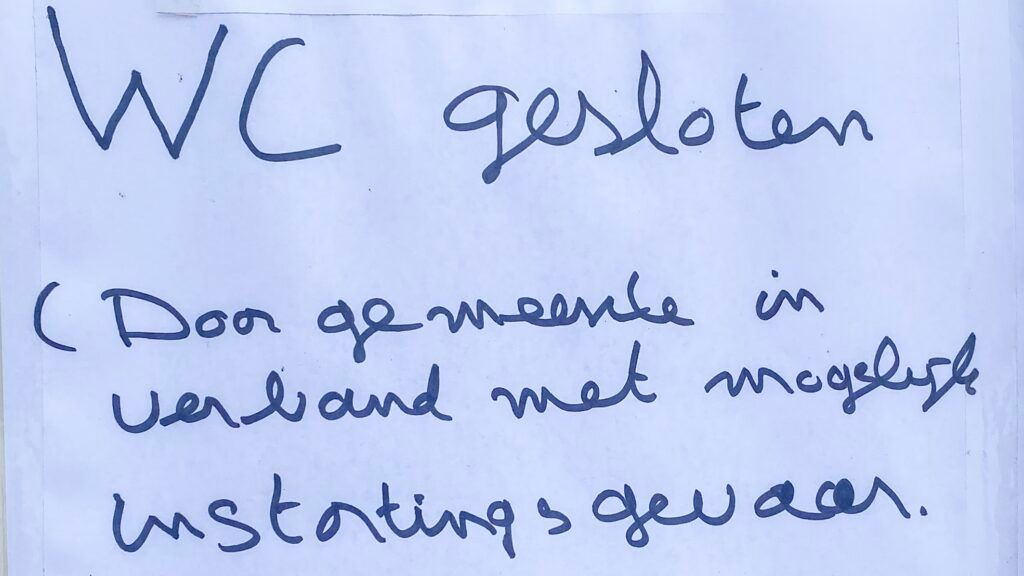 WC gesloten
(Door gemeente in
verband met mogelijk
instortingsgevaar.